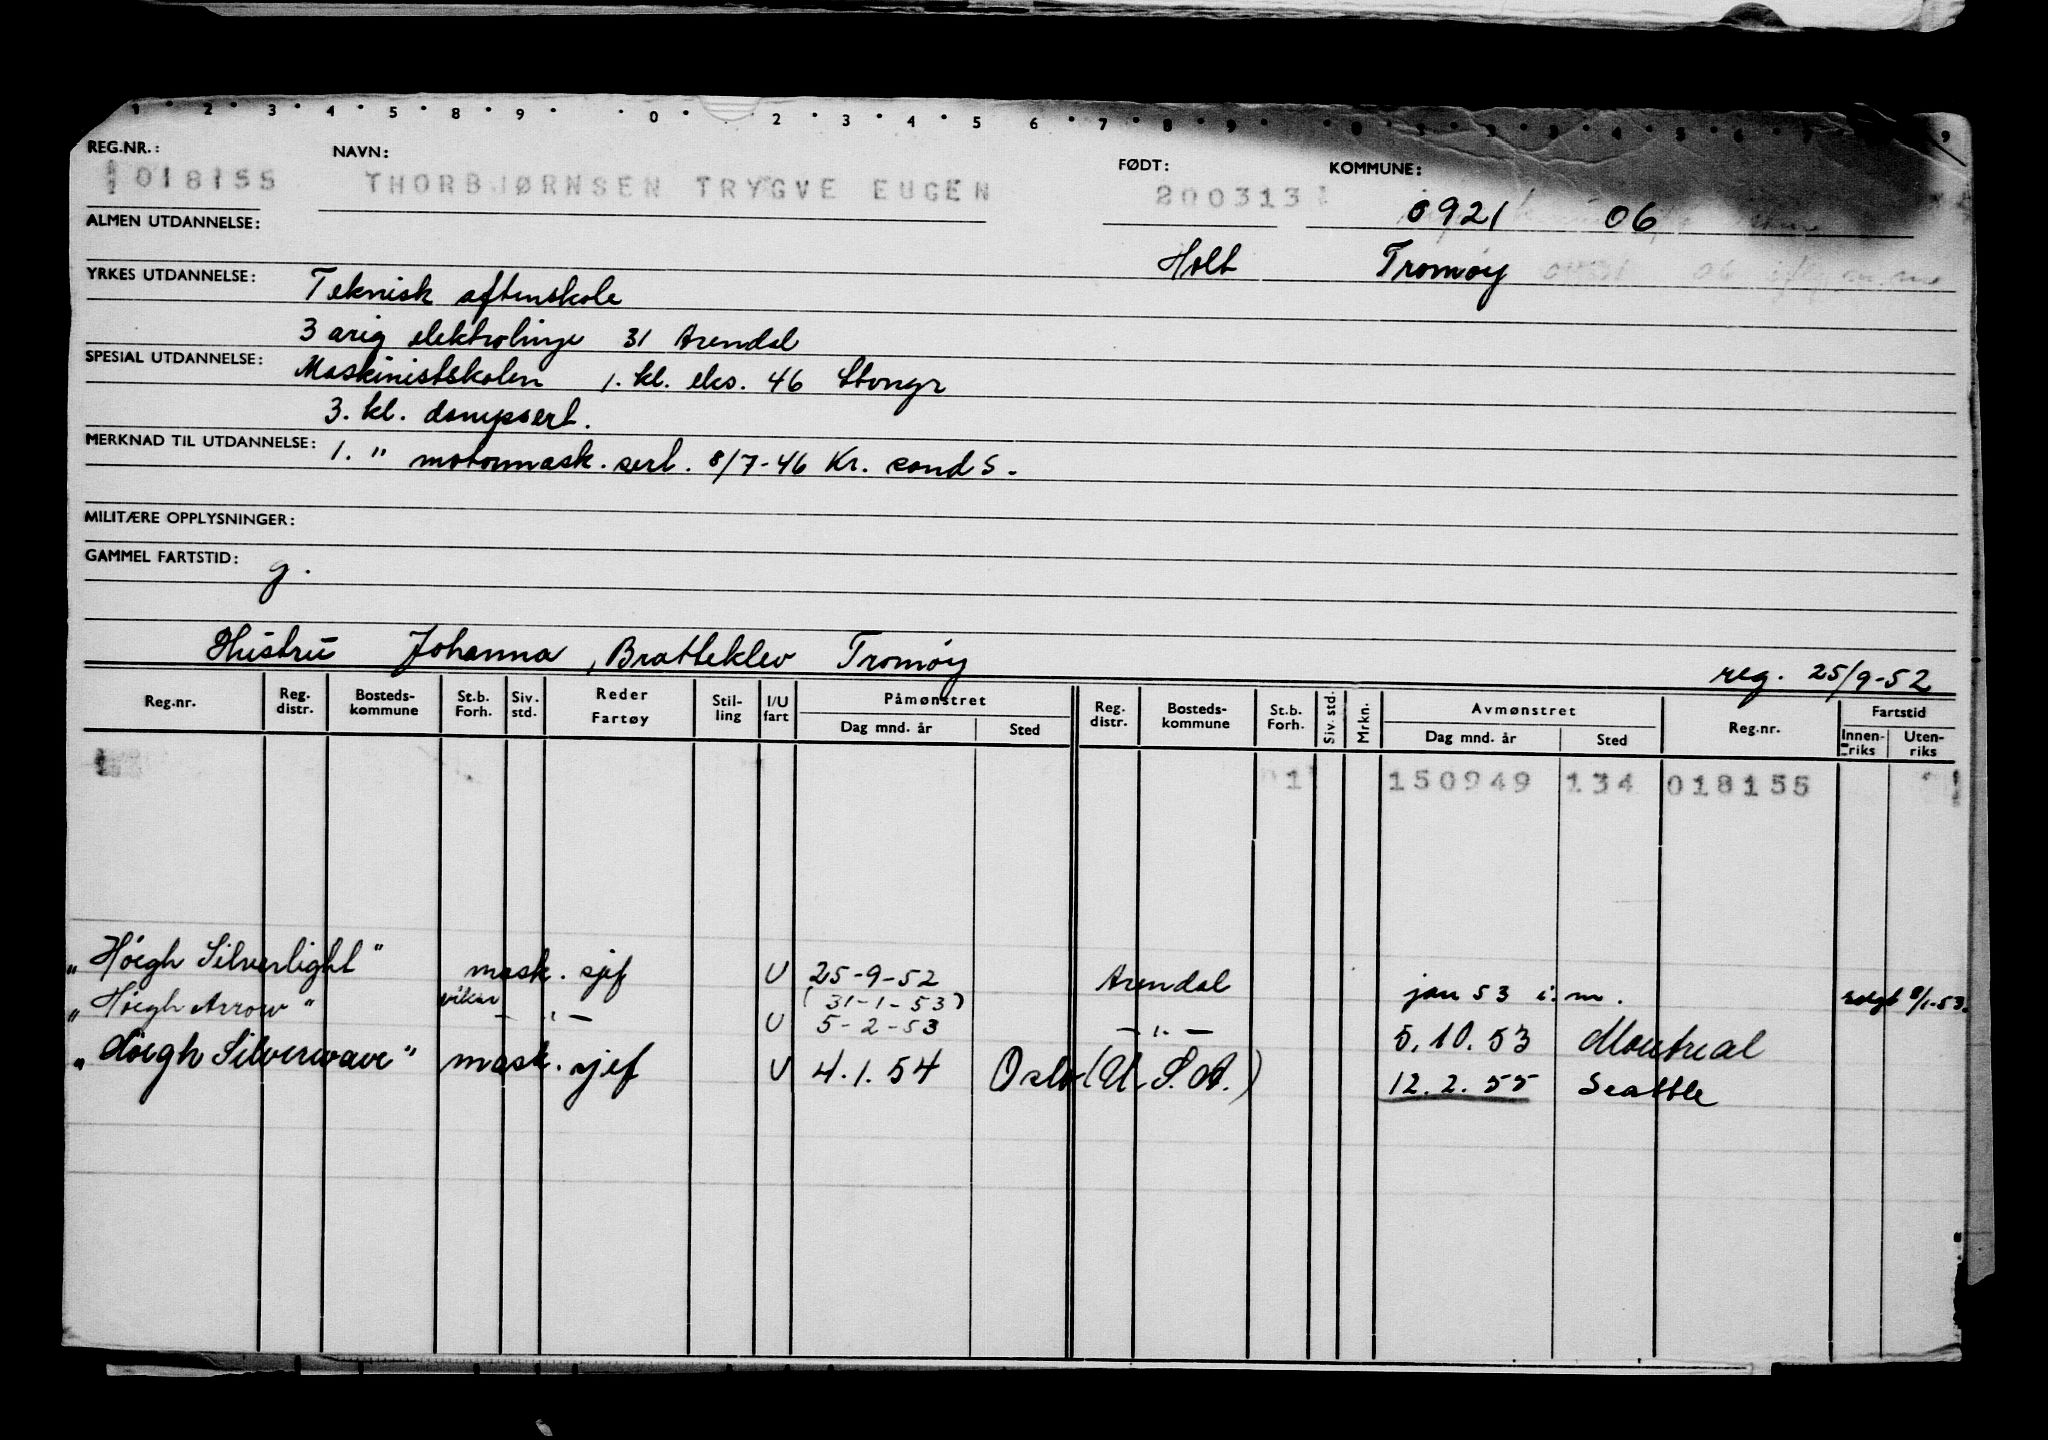 1 2 3 4 5 8 9 0 2 3 4 5 6 7 8 9 0 2 3 4 5 6 7 9
REG.NR.: NAVN: FØDT: KOMMUNE:
018155 THORBJØRNSEN TRYGVE EUGEN 200313 0921 06
ALMEN UTDANNELSE:
Holt Tromøy
YRKES UTDANNELSE: Teknisk aftenskole
3 årig elektrolinje 31 Arendal
SPESIAL UTDANNELSE: Maskinistskolen 1. kl. eks. 46 Stvngr
3. kl. dampsert.
MERKNAD TIL UTDANNELSE: 1. " motormask. sert. 8/7-46 Kr. sand S.
MILITÆRE OPPLYSNINGER:
GAMMEL FARTSTID: g.
Hustru Johanna, Bratteklev Tromøy reg. 25/9-52
Reg.nr. Reg. distr. Bosteds-kommune St.b. Forh. Siv. std. Reder Fartøy Stil-ling I/U fart Påmønstret Dag mnd. år Sted Reg. distr. Bosteds-kommune St.b. Forh. Siv. std. Mrkn. Avmønstret Dag mnd. år Sted Reg.nr. Fartstid Innen-riks Uten-riks
01 150949 134 018155
"Höegh Silverlight" mask. sjef U 25-9-52 Arendal jan 53 i. m. solgt 8/1-53.
(31-1-53)
"Höegh Arrow" vikar — " — U 5-2-53 — " — 5.10.53 Montreal
"Höegh Silverwave" mask. sjef U 4.1.54 Oslo (U.S.A.) 12.2.55 Seattle